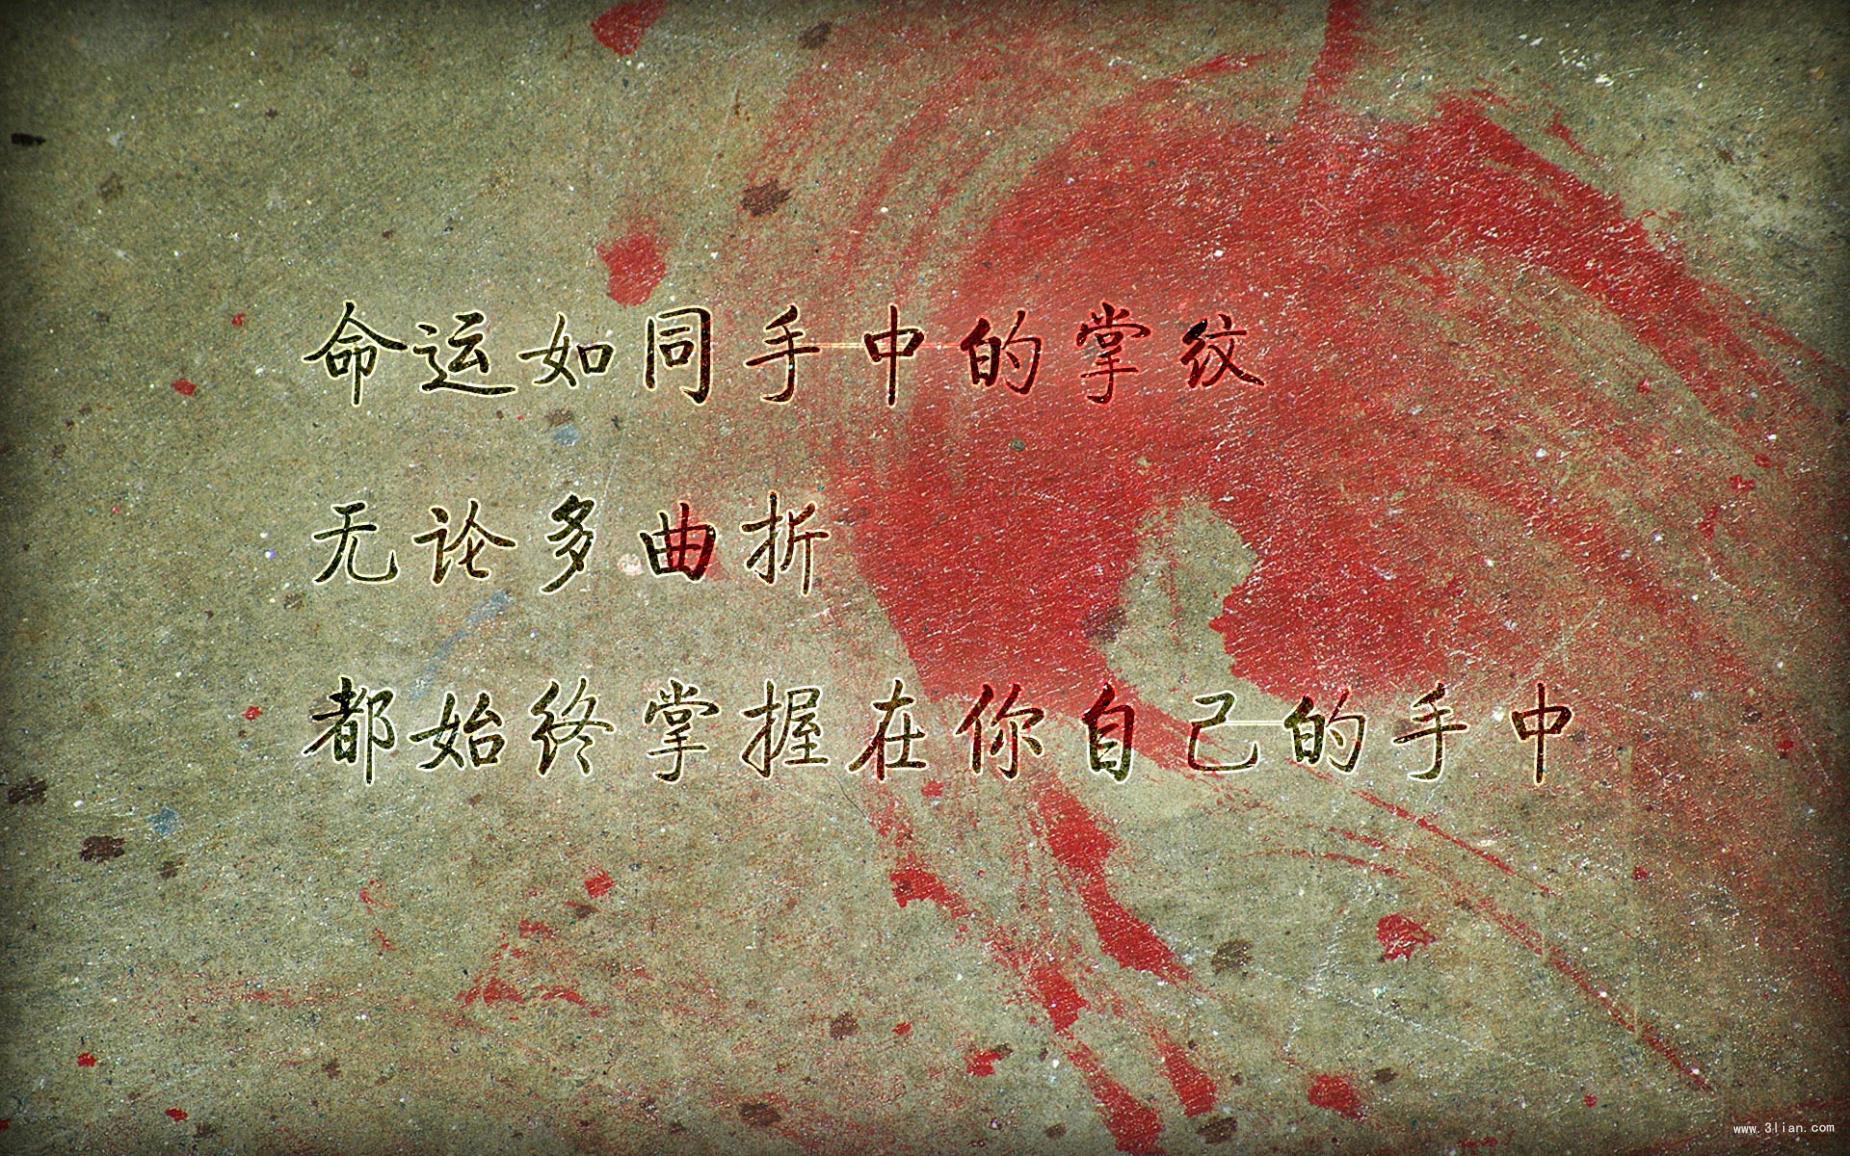 命运如同手中的掌纹
无论多曲折
都始终掌握在你自己的手中
www.3lian.com